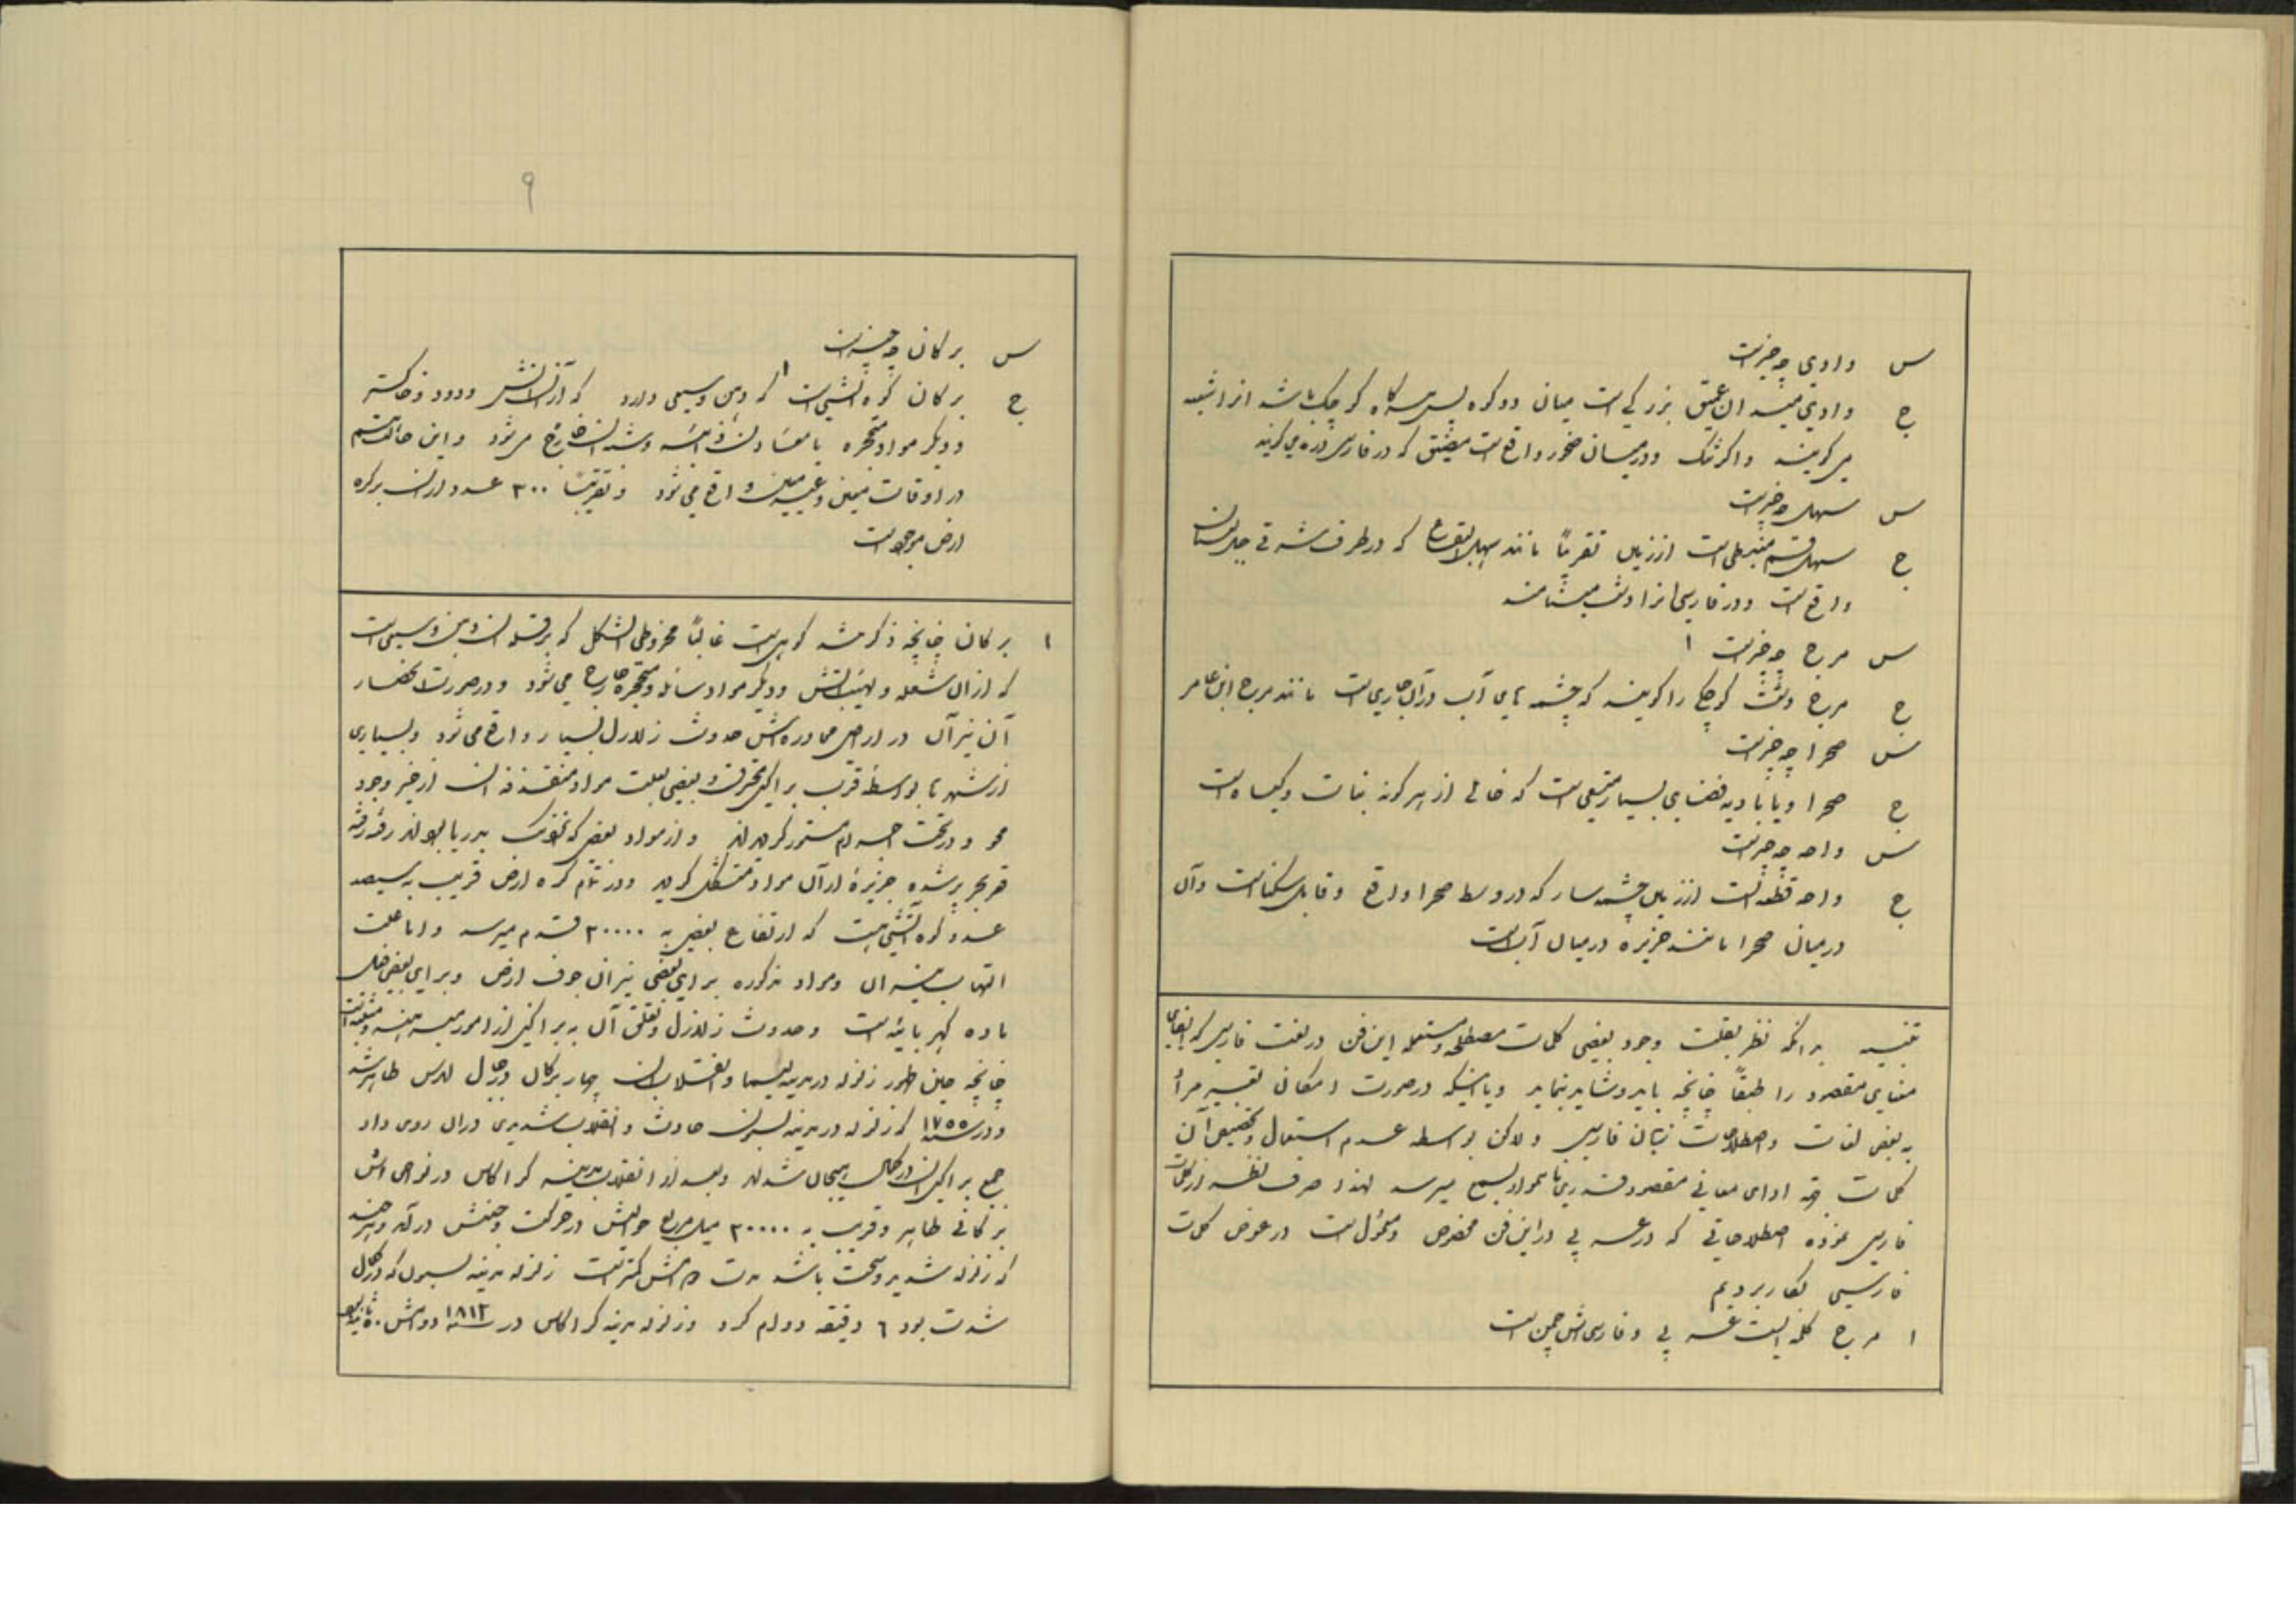 س وادی چه چیز است
ج وادی میدان عمیق بزرگی است میان دو کوه پس هرگاه کوچک باشد انرا شعبه
می گویند و اگر تنک و در میان صخور واقع است مضیق که در فارسی دره می گویند
س سهل چه چیز است
ج سهل قسم منبسطی است از زمین تقریباً مانند سهل البقاع که در طرف شرقی جبل لبنان
واقع است و در فارسی انرا دشت مینامند
س مرج چه چیز است ۱
ج مرج دشت کوچکی را گویند که چشمه های آب در آن جاری است مانند مرج ابن عامر
س صحرا چه چیز است
ج صحرا و یا بادیه فضای بسیار متسعی است که خالی از هر گونه نبات و گیاه است
س واحه چه چیز است
ج واحه قطعه ایست از زمین چشمه سار که در وسط صحرا واقع و قابل سکنا است و آن
در میان صحرا مانند جزیره در میان آب است
تنبیه بدانکه نظر بقلت وجود بعضی کلمات مصطلحه و مستعمله این فن در لغت فارسی که ایفای
معنای مقصود را طبقاً چنانچه باید و شاید بنماید و یا اینکه در صورت امکان تعبیر مرا
به بعض لغات و اصطلاحات زبان فارسی ولکن بواسطه عدم استعمال و تخصیص آن
کلمات بجهة ادای معانی مقصود قدری ناهموار بسمع میرسد لهذا صرف نظر از کلمات
فارسی نموده اصطلاحاتی که در عربی در این فن مخصوص و معمول است در عوض کلمات
فارسی بکار بردیم
۱ مرج کلمه ایست عربی و فارسی اش چمن است
۹
س برکان چه چیز است
ج برکان کوه آتشی است ۱ که دهن وسیعی دارد که از آن آتش و دود و خاکستر
و دیگر مواد متحجره با معادن ذائبه از آن خارج می شود و این حالت هم
در اوقات معین و غیر معین واقع می شود و تقریباً ۳۰۰ عدد از آن بر کره
ارض موجود است
۱ برکان چنانچه ذکر شد کوهی است غالباً مخروطی الشکل که بر قله آن دهن وسیعی است
که از آن شعله و لهیب آتش و دیگر مواد سائله و متحجره خارج می شود و در صورت انفجار
آن نیران در اراضی مجاوره اش حدوث زلازل بسیار واقع می شود و بسیاری
از شهر ها بواسطه قرب براکین محترق و بعضی بعلت مواد منقذفه آن از خیر وجود
محو و در تحت مستمر گردیدند و از مواد بعض که نزدیک بدریا بودند رفته رفته
قعر بحر پر شده جزیرۀ از آن مواد متشکل گردید و در تمام کره ارض قریب به سیصد
عدد کوه آتشی هست که ارتفاع بعضی به ۲۰۰۰۰ قدم میرسد و اما علت
التهاب نیران و مواد مذکوره برای بعضی نیران جوف ارض و برای بعضی
ماده کهربائیه است و حدوث زلازل و تعلق آن به براکین از امور
چنانچه حین ظهور زلزله در مدینه لیما و انقلاب آن چهار برکان در جبال ظاهر شد
و در سنه ۱۷۵۵ که زلزله در مدینه لسبون حادث و انقلاب شدیدی در آن روی داد
جمع براکین آن در کمال هیجان شدند و بعد از انقلاب مدینه کراکاس در نواحی اش
برکانی ظاهر و قریب به ۲۰۰۰۰ میل مربع حوالیش در حرکت و جنبش در آمد و هر چند
که زلزله شدید و سخت باشد مدت دوامش کمتر است زلزله مدینه لسبون که در کمال
شدت بود ۶ دقیقه دوام کرد و زلزله مدینه کراکاس در سنه ۱۸۱۲ دوامش ۵۰ ثانیه بود